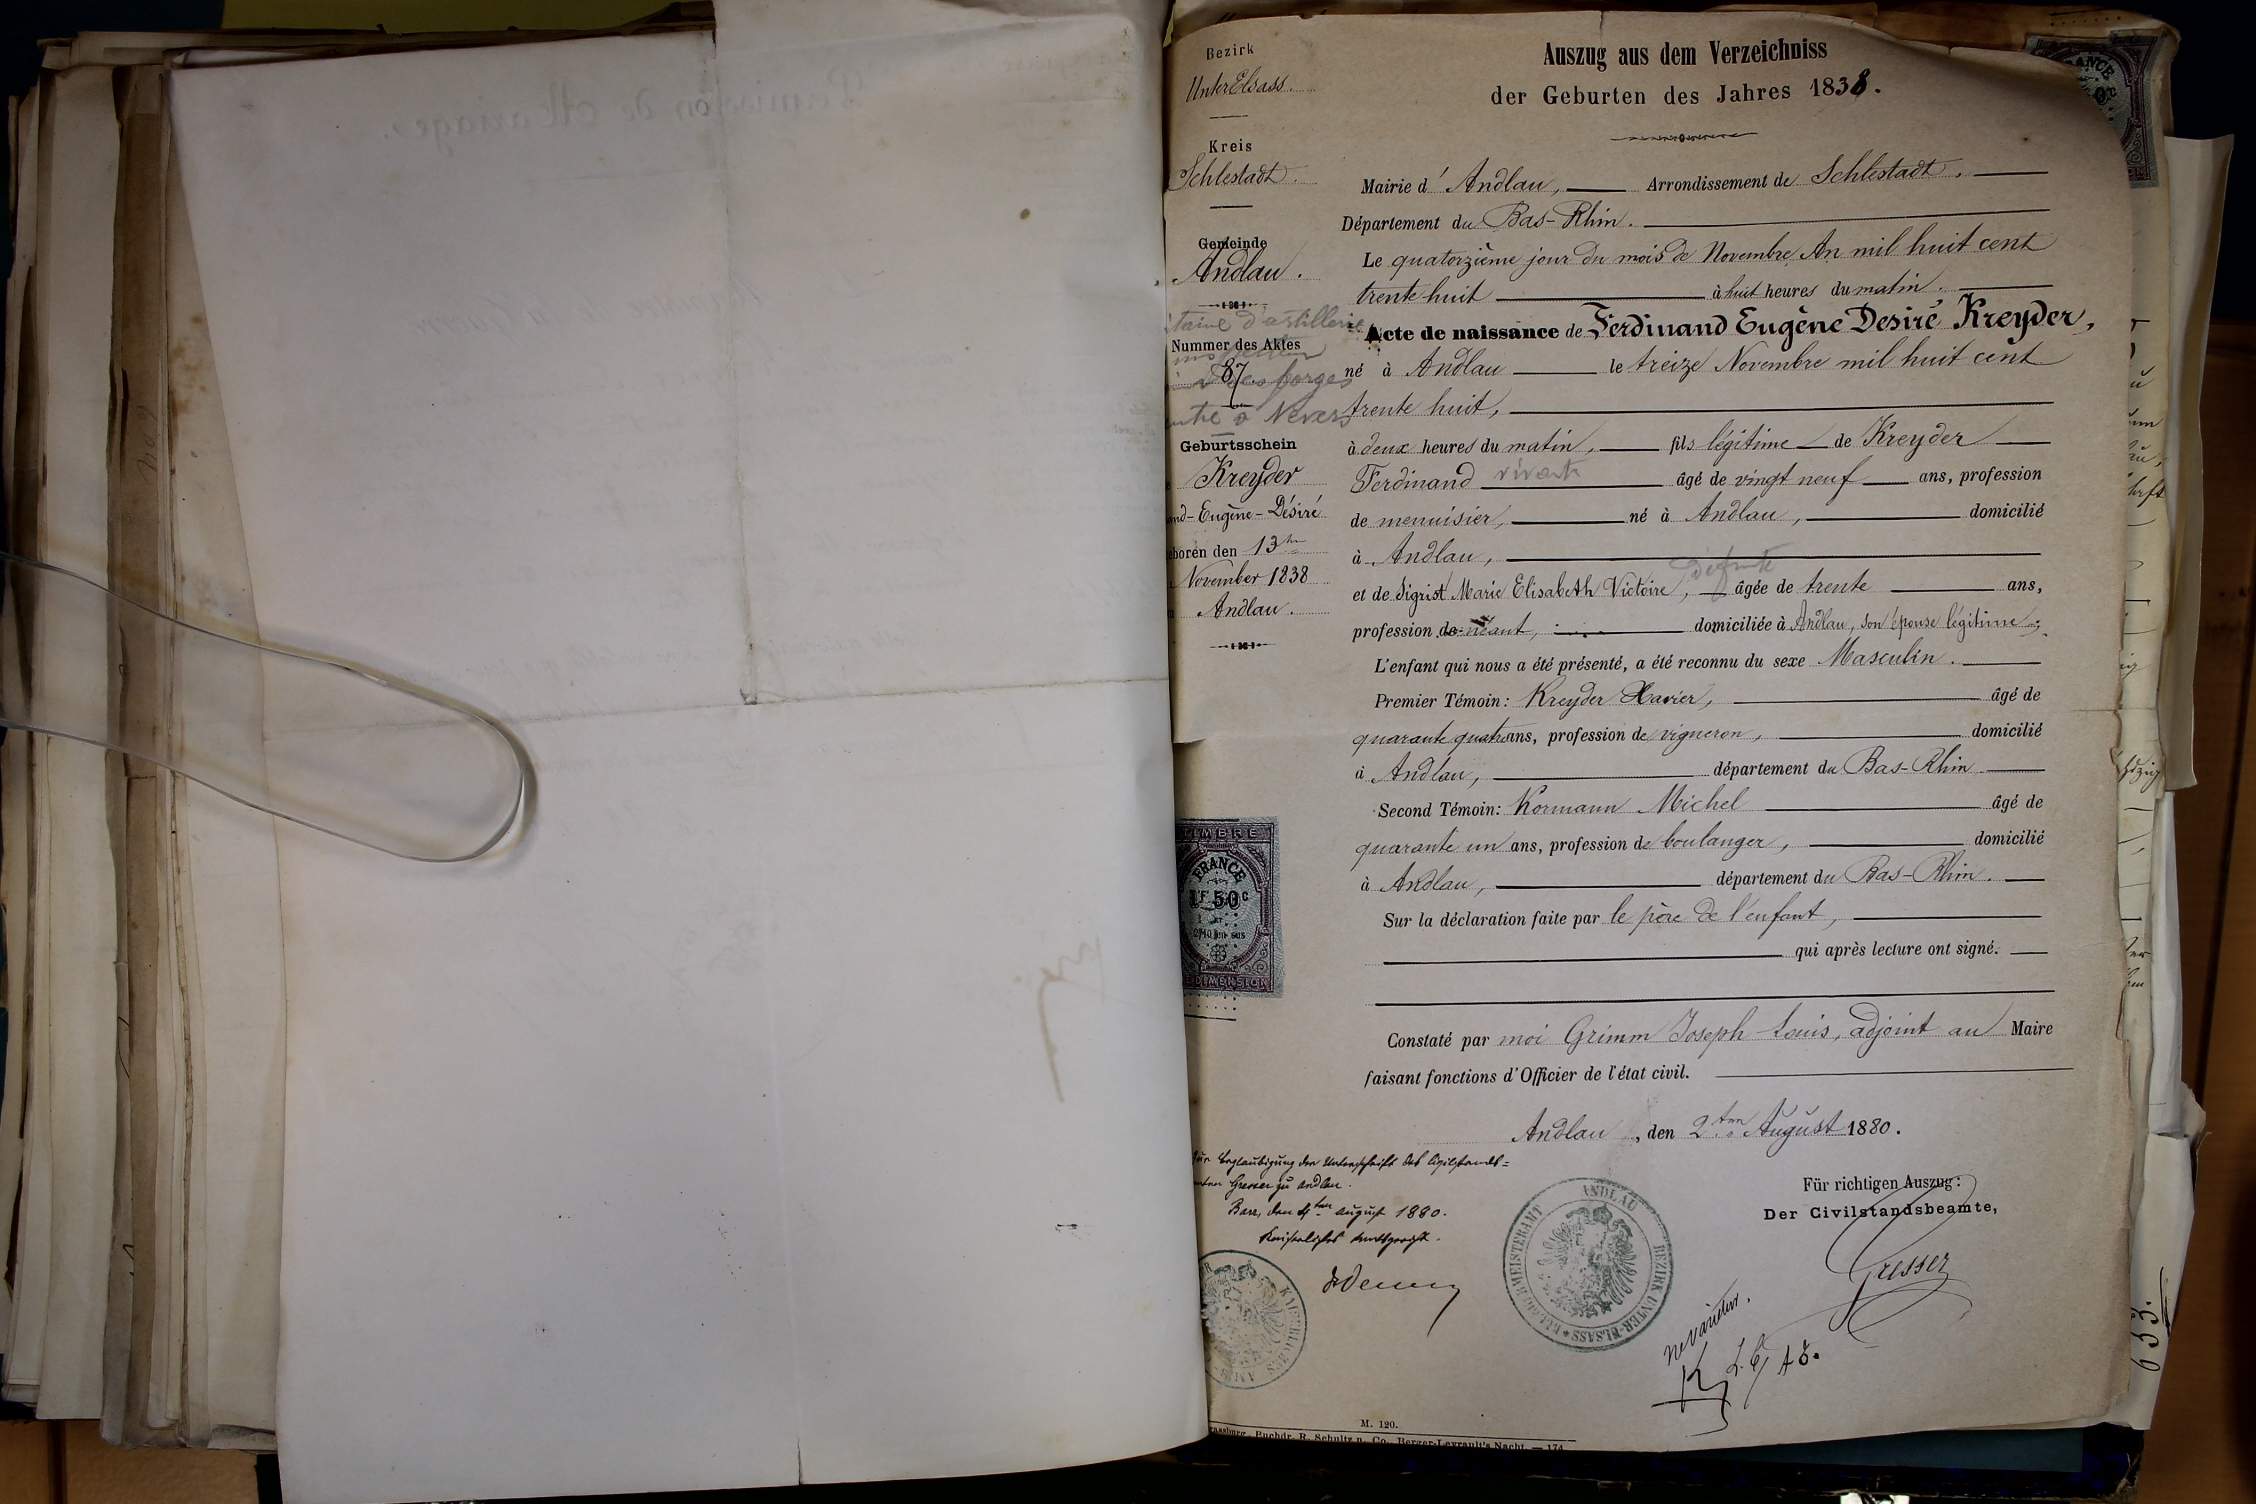 Permission de Mariage.
Bezirk
Unter Elsass.
Kreis
Schlestadt.
Gemeinde
Andlau.
taine d'artillerie
Nummer des Aktes
inspecteur
87.
des forges
entre à Nevers
Geburtsschein
Kreyder
and-Eugène-Désiré
eboren den 13ten
November 1838
Andlau.
TIMBRE
FRANCE
1F 50c
2/10 en sus
DIMENSION
Auszug aus dem Verzeichniss
der Geburten des Jahres 1838.
Mairie d'Andlau, Arrondissement de Schlestadt,
Département du Bas-Rhin.
Le quatorzième jour du mois de Novembre An mil huit cent
trente huit à huit heures du matin.
Acte de naissance de Ferdinand Eugène Desiré Kreyder,
né à Andlau le treize Novembre mil huit cent
trente huit,
à deux heures du matin, fils légitime de Kreyder
Ferdinand vivant âgé de vingt neuf ans, profession
de menuisier, né à Andlau, domicilié
à Andlau,
défunte
et de Sigrist Marie Elisabeth Victoire, âgée de trente ans,
profession de néant, domiciliée à Andlau, son épouse légitime;
L'enfant qui nous a été présenté, a été reconnu du sexe Masculin.
Premier Témoin: Kreyder Xavier, âgé de
quarante quatre ans, profession de vigneron, domicilié
à Andlau, département du Bas-Rhin
Second Témoin: Kormann Michel âgé de
quarante un ans, profession de boulanger, domicilié
à Andlau, département du Bas-Rhin.
Sur la déclaration faite par le père de l'enfant,
qui après lecture ont signé.
Constaté par moi Grimm Joseph Louis, adjoint au Maire
faisant fonctions d'Officier de l'état civil.
Andlau, den 2ten August 1880.
Zur Beglaubigung der Unterschrift des Civilstands=
amten Gresser zu Andlau.
Barr, den 4ten August 1880.
Kaiserliches Amtsgericht.
Für richtigen Auszug:
Der Civilstandsbeamte,
Gresser
BÜRGERMEISTERAMT ANDLAU BEZIRK UNTER-ELSASS
KAISERLICHES AMTS
ne varietur.
M. 120.
rassburg, Buchdr. R. Schultz u. Co. Berger-Levrault's Nachf. — 174
FRANCE
633.